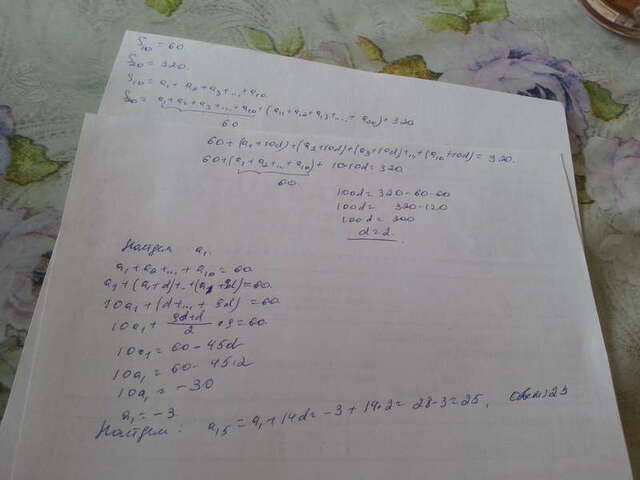 S₁₀ = 60
S₂₀ = 320.
S₁₀ = a₁ + a₂ + a₃ + ... + a₁₀
S₂₀ = a₁ + a₂ + a₃ + ... + a₁₀ + (a₁₁ + a₁₂ + a₁₃ + ... + a₂₀) = 320
60
60 + (a₁ + 10d) + (a₂ + 10d) + (a₃ + 10d) + ... + (a₁₀ + 10d) = 320.
60 + (a₁ + a₂ + ... + a₁₀) + 10·10d = 320
60
100d = 320 - 60 - 60
100d = 320 - 120
100d = 200
d = 2.
Найдем a₁.
a₁ + a₂ + ... + a₁₀ = 60
a₁ + (a₁ + d) + ... + (a₁ + 9d) = 60.
10a₁ + (d + ... + 9d) = 60
10a₁ + (9d + d)/2 · 9 = 60
10a₁ = 60 - 45d
10a₁ = 60 - 45·2
10a₁ = -30
a₁ = -3
Найдем: a₁₅ = a₁ + 14d = -3 + 14·2 = 28 - 3 = 25. Ответ: 25